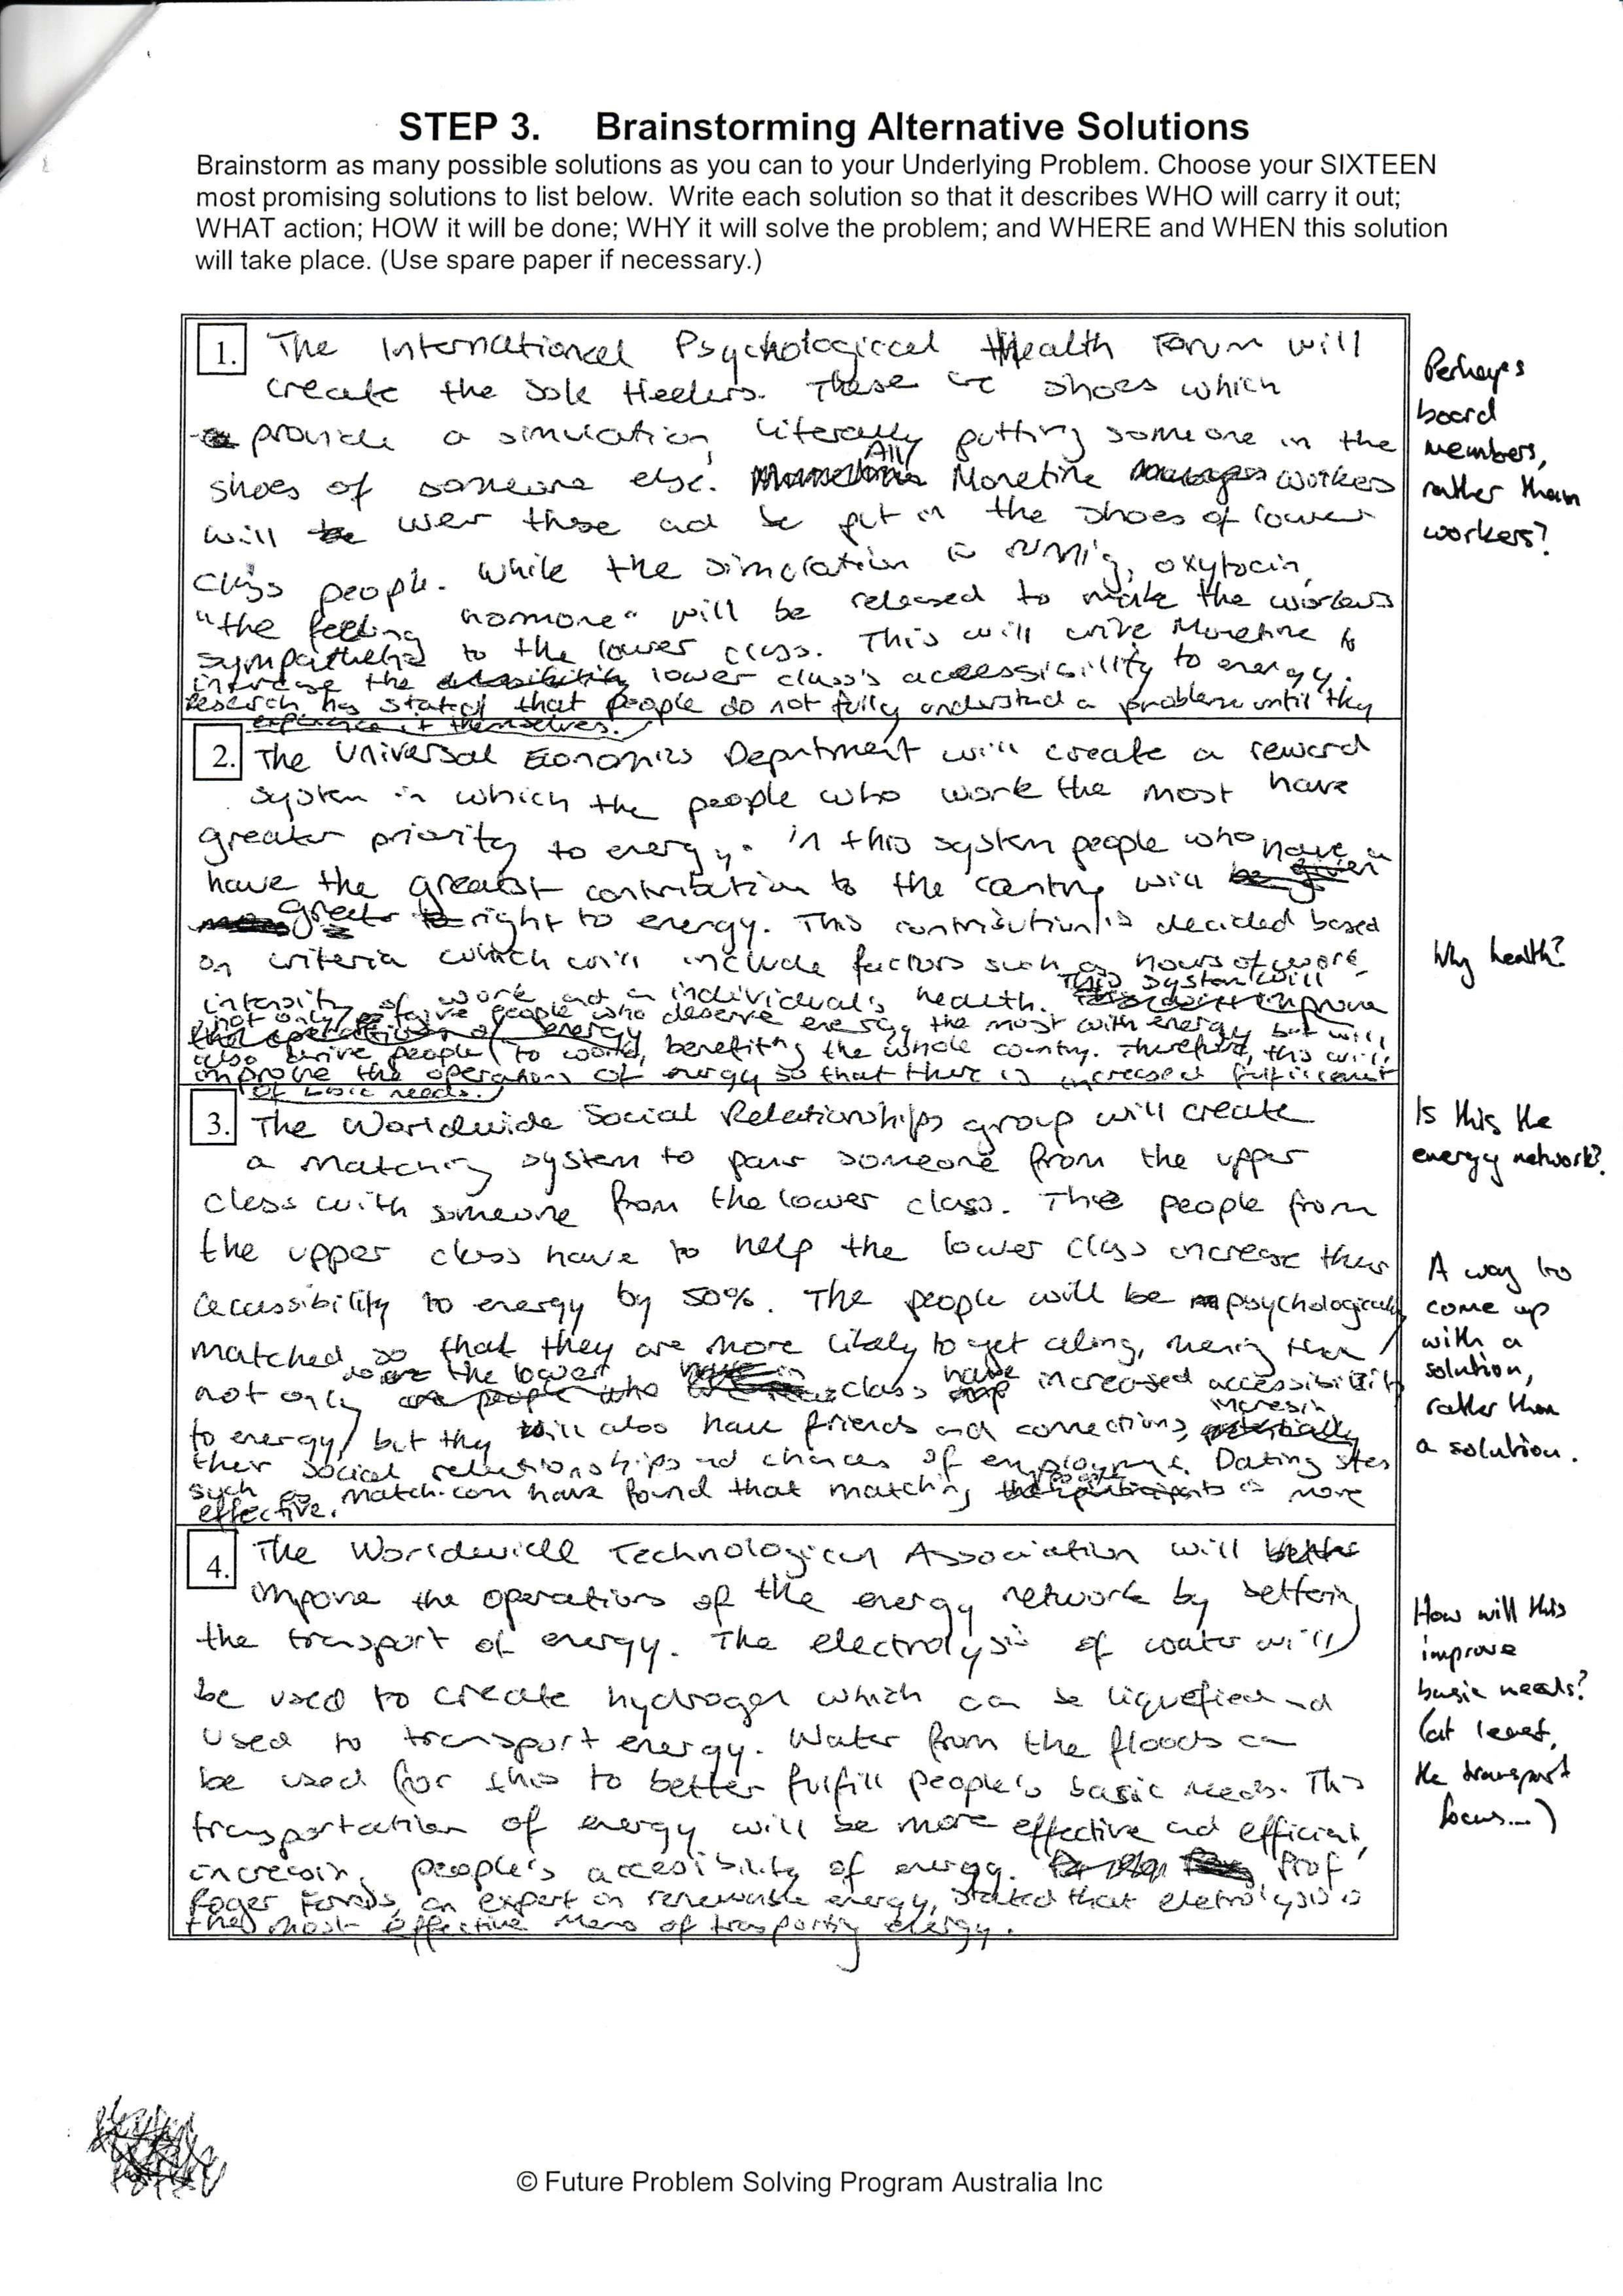 STEP 3. Brainstorming Alternative Solutions
Brainstorm as many possible solutions as you can to your Underlying Problem. Choose your SIXTEEN
most promising solutions to list below. Write each solution so that it describes WHO will carry it out;
WHAT action; HOW it will be done; WHY it will solve the problem; and WHERE and WHEN this solution
will take place. (Use spare paper if necessary.)
1. The International Psychological Health Forum will
create the Sole Heelers. These are shoes which
provide a simulation, literally putting someone in the
shoes of someone else. All Monetine workers
will wear these and be put in the shoes of lower
class people. While the simulation is running, oxytocin,
"the feeling hormone" will be released to make the workers
sympathetic to the lower class. This will drive Monetine to
increase the lower class's accessibility to energy.
Research has stated that people do not fully understand a problem until they
experience it themselves.
Perhaps
board
members,
rather than
workers?
2. The Universal Economics Department will create a reward
system in which the people who work the most have
greater priority to energy. In this system people who have a
have the greatest contribution to the country will
greater right to energy. This contribution is decided based
on criteria which will include factors such as hours of work,
intensity of work and an individual's health. This system will
not only give people who deserve energy the most with energy but will
also drive people to work, benefiting the whole country. Therefore, this will
improve the operations of energy so that there is increased fulfillment
of basic needs.
Why health?
3. The Worldwide Social Relationships group will create
a matching system to pair someone from the upper
class with someone from the lower class. The people from
the upper class have to help the lower class increase their
accessibility to energy by 50%. The people will be psychologically
matched so that they are more likely to get along, meaning that
not only does the lower class have increased accessibility
to energy, but they will also have friends and connections, increasing
their social relationships and chances of employment. Dating sites
such as match.com have found that matching people is more
effective.
Is this the
energy network?
A way to
come up
with a
solution,
rather than
a solution.
4. The Worldwide Technological Association will
improve the operations of the energy network by bettering
the transport of energy. The electrolysis of water will
be used to create hydrogen which can be liquefied and
used to transport energy. Water from the floods can
be used for this to better fulfill people's basic needs. This
transportation of energy will be more effective and efficient,
increasing people's accessibility of energy. Prof
Roger, an expert on renewable energy, stated that eletrolysis is
the most effective means of transporting energy.
How will this
improve
basic needs?
(at least,
the transport
focus...)
© Future Problem Solving Program Australia Inc